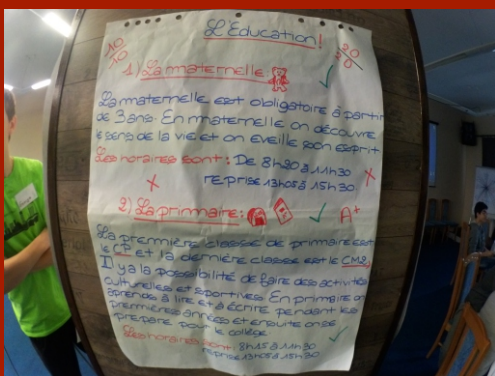 10
10
L'Éducation!
20
20
1) La maternelle
La maternelle est obligatoire à partir
de 3 ans. En maternelle on découvre
le sens de la vie et on eveille son esprit
Les horaires sont: De 8h30 à 11h30
reprise 13h05 à 15h30.
2) La primmaire:
A+
La première classe de primaire est
le CP et la dernière classe est le CM2.
Il y a la possibilité de faire des activités
culturelles et sportives. En primaire on
aprends à lire et à écrire pendant les
premières années et ensuite on se
prepare pour le collège.
Les horaires sont: 8h15 à 11h30
reprise 13h05 à 15h30